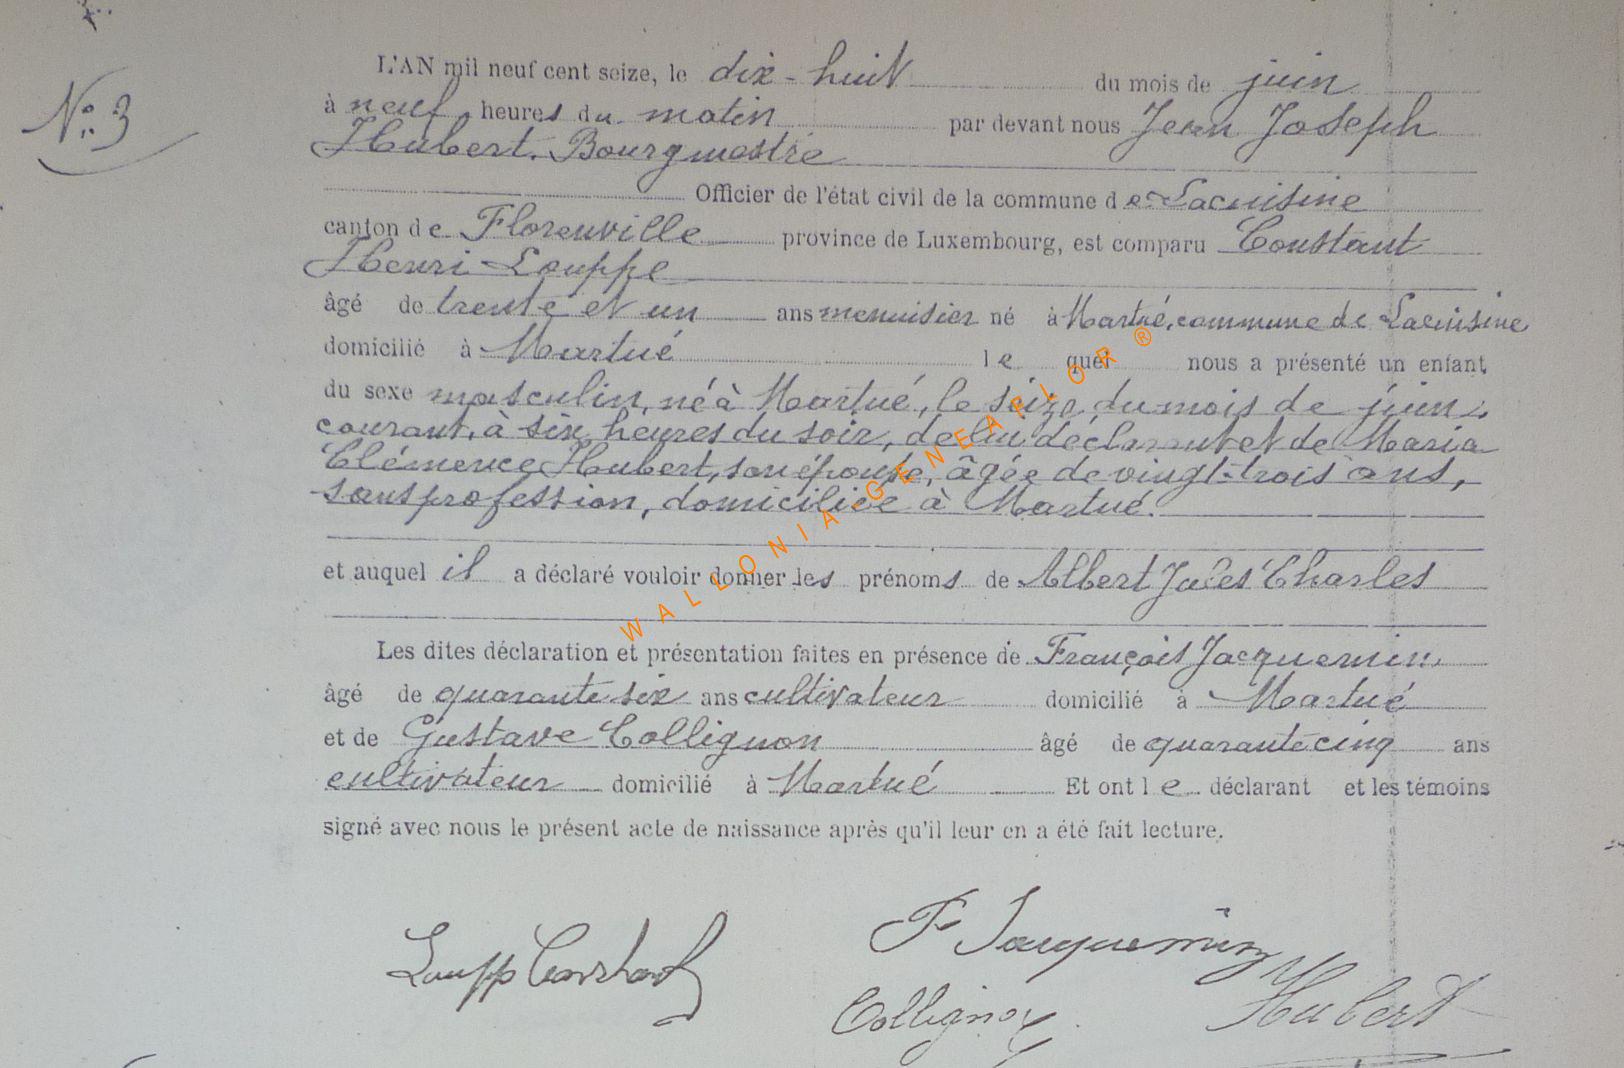 No: 3
L'AN mil neuf cent seize, le dix-huit du mois de juin
à neuf heures du matin par devant nous Jean Joseph
Hubert, Bourgmestre
Officier de l'état civil de la commune de Lacuisine
canton de Florenville province de Luxembourg, est comparu Constant
Henri Louppe
âgé de trente et un ans menuisier né à Martué, commune de Lacuisine
domicilié à Martué le quel nous a présenté un enfant
du sexe masculin, né à Martué, le seize du mois de juin,
courant, à six heures du soir, de lui déclarant et de Maria
Clémence Hubert, son épouse, âgée de vingt-trois ans,
sans profession, domiciliée à Martué.
et auquel il a déclaré vouloir donner les prénoms de Albert Jules Charles
Les dites déclaration et présentation faites en présence de François Jacquemin,
âgé de quarante six ans cultivateur domicilié à Martué
et de Gustave Collignon âgé de quarante cinq ans
cultivateur domicilié à Martué Et ont le déclarant et les témoins
signé avec nous le présent acte de naissance après qu'il leur en a été fait lecture.
Loupp Constant
F Jacquemin
Collignon
Hubert
WALLONIA-GENEAFLOR ®